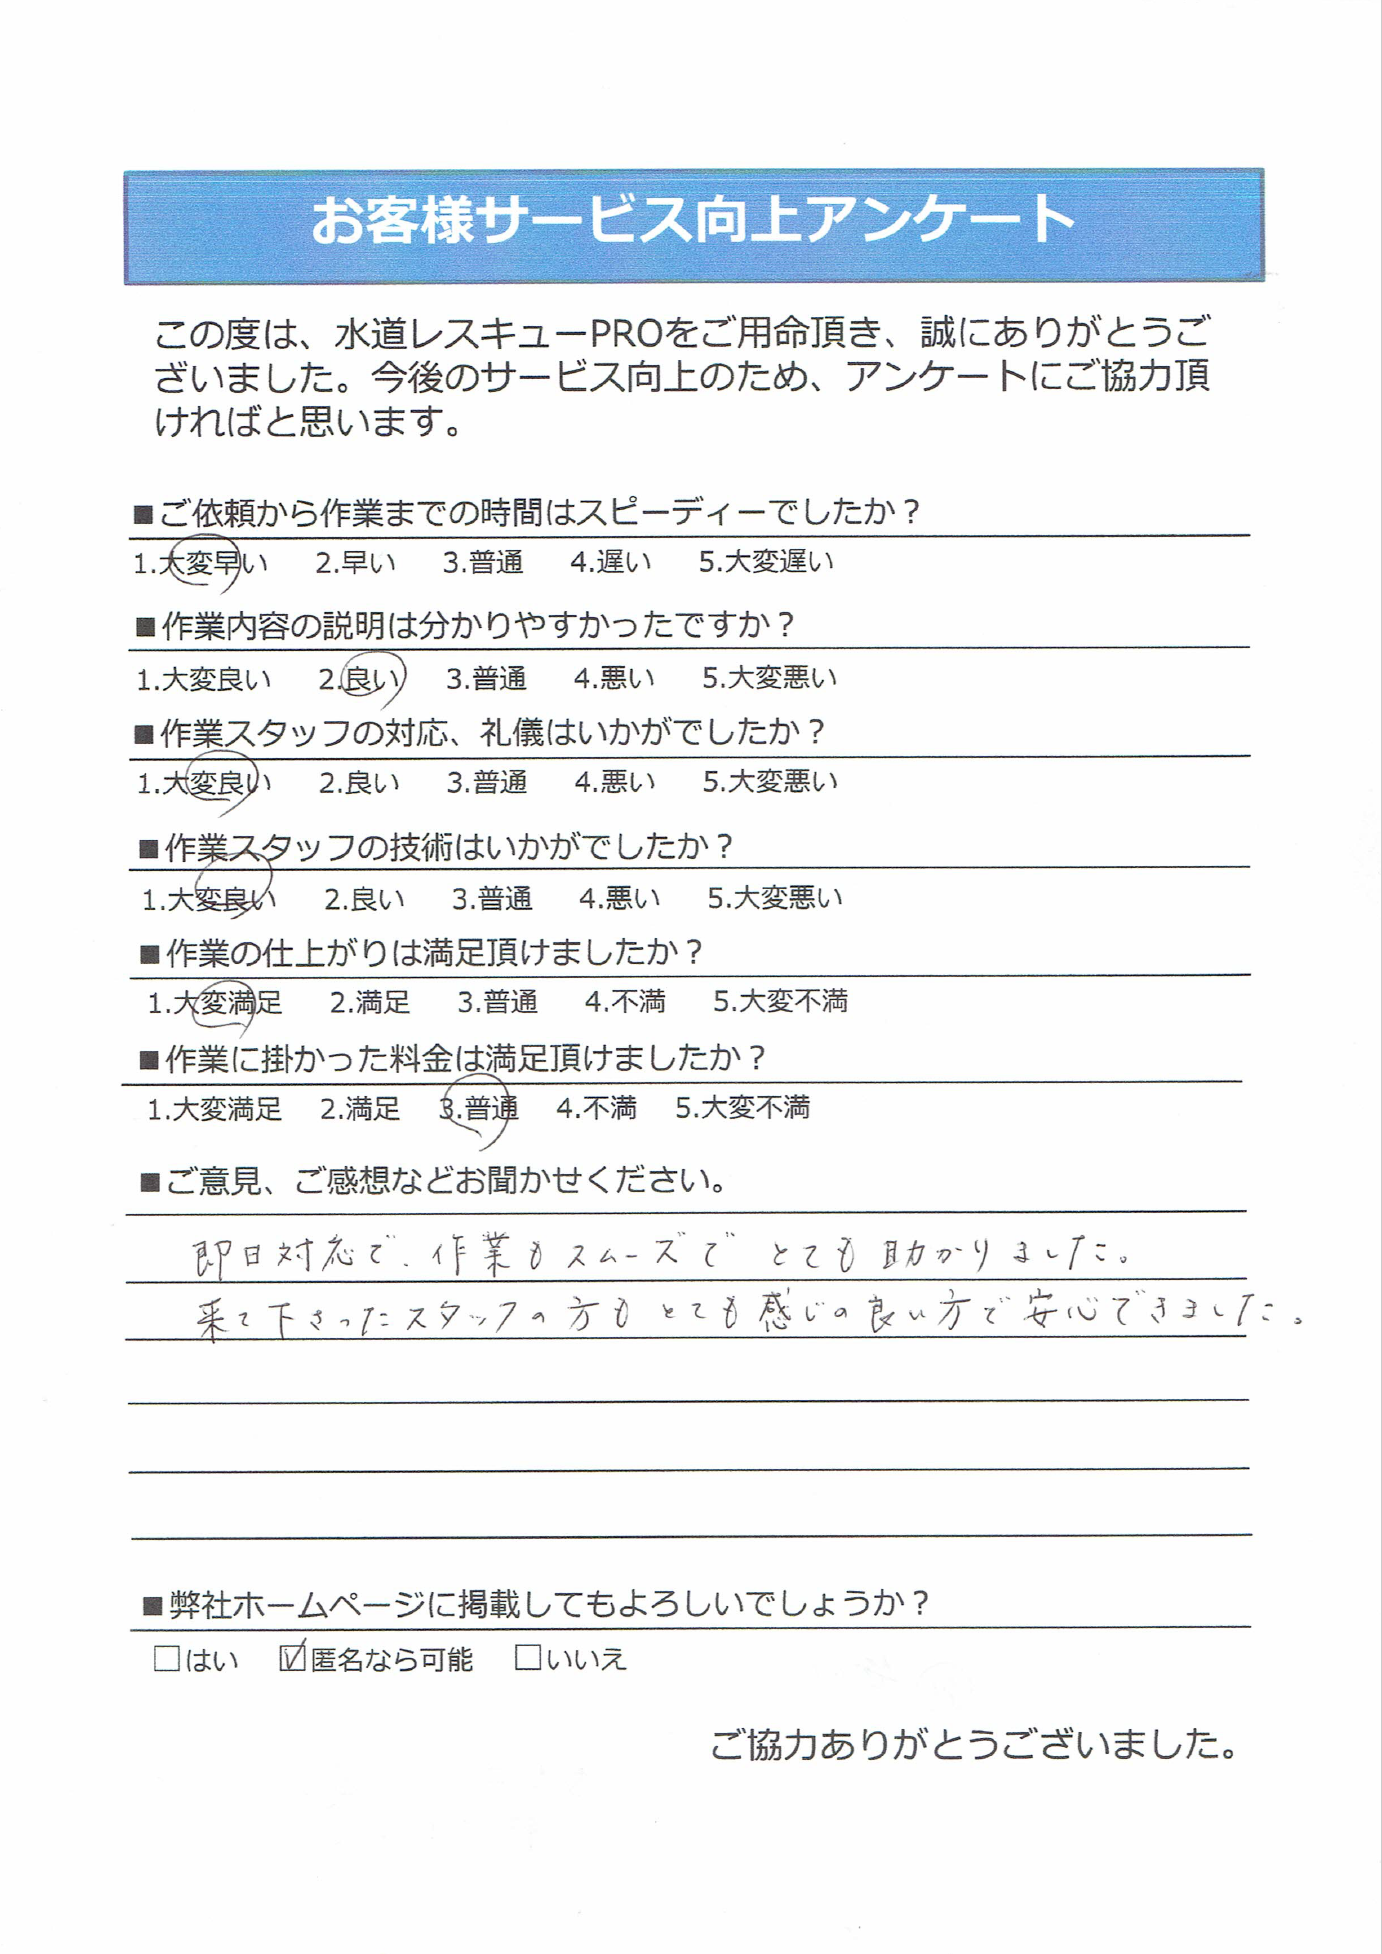 お客様サービス向上アンケート
この度は、水道レスキューPROをご用命頂き、誠にありがとうご
ざいました。今後のサービス向上のため、アンケートにご協力頂
ければと思います。
■ご依頼から作業までの時間はスピーディーでしたか？
1.大変早い 2.早い 3.普通 4.遅い 5.大変遅い
■作業内容の説明は分かりやすかったですか？
1.大変良い 2.良い 3.普通 4.悪い 5.大変悪い
■作業スタッフの対応、礼儀はいかがでしたか？
1.大変良い 2.良い 3.普通 4.悪い 5.大変悪い
■作業スタッフの技術はいかがでしたか？
1.大変良い 2.良い 3.普通 4.悪い 5.大変悪い
■作業の仕上がりは満足頂けましたか？
1.大変満足 2.満足 3.普通 4.不満 5.大変不満
■作業に掛かった料金は満足頂けましたか？
1.大変満足 2.満足 3.普通 4.不満 5.大変不満
■ご意見、ご感想などお聞かせください。
即日対応で、作業もスムーズで とても助かりました。
来て下さったスタッフの方もとても感じの良い方で安心できました。
■弊社ホームページに掲載してもよろしいでしょうか？
□はい ☑匿名なら可能 □いいえ
ご協力ありがとうございました。